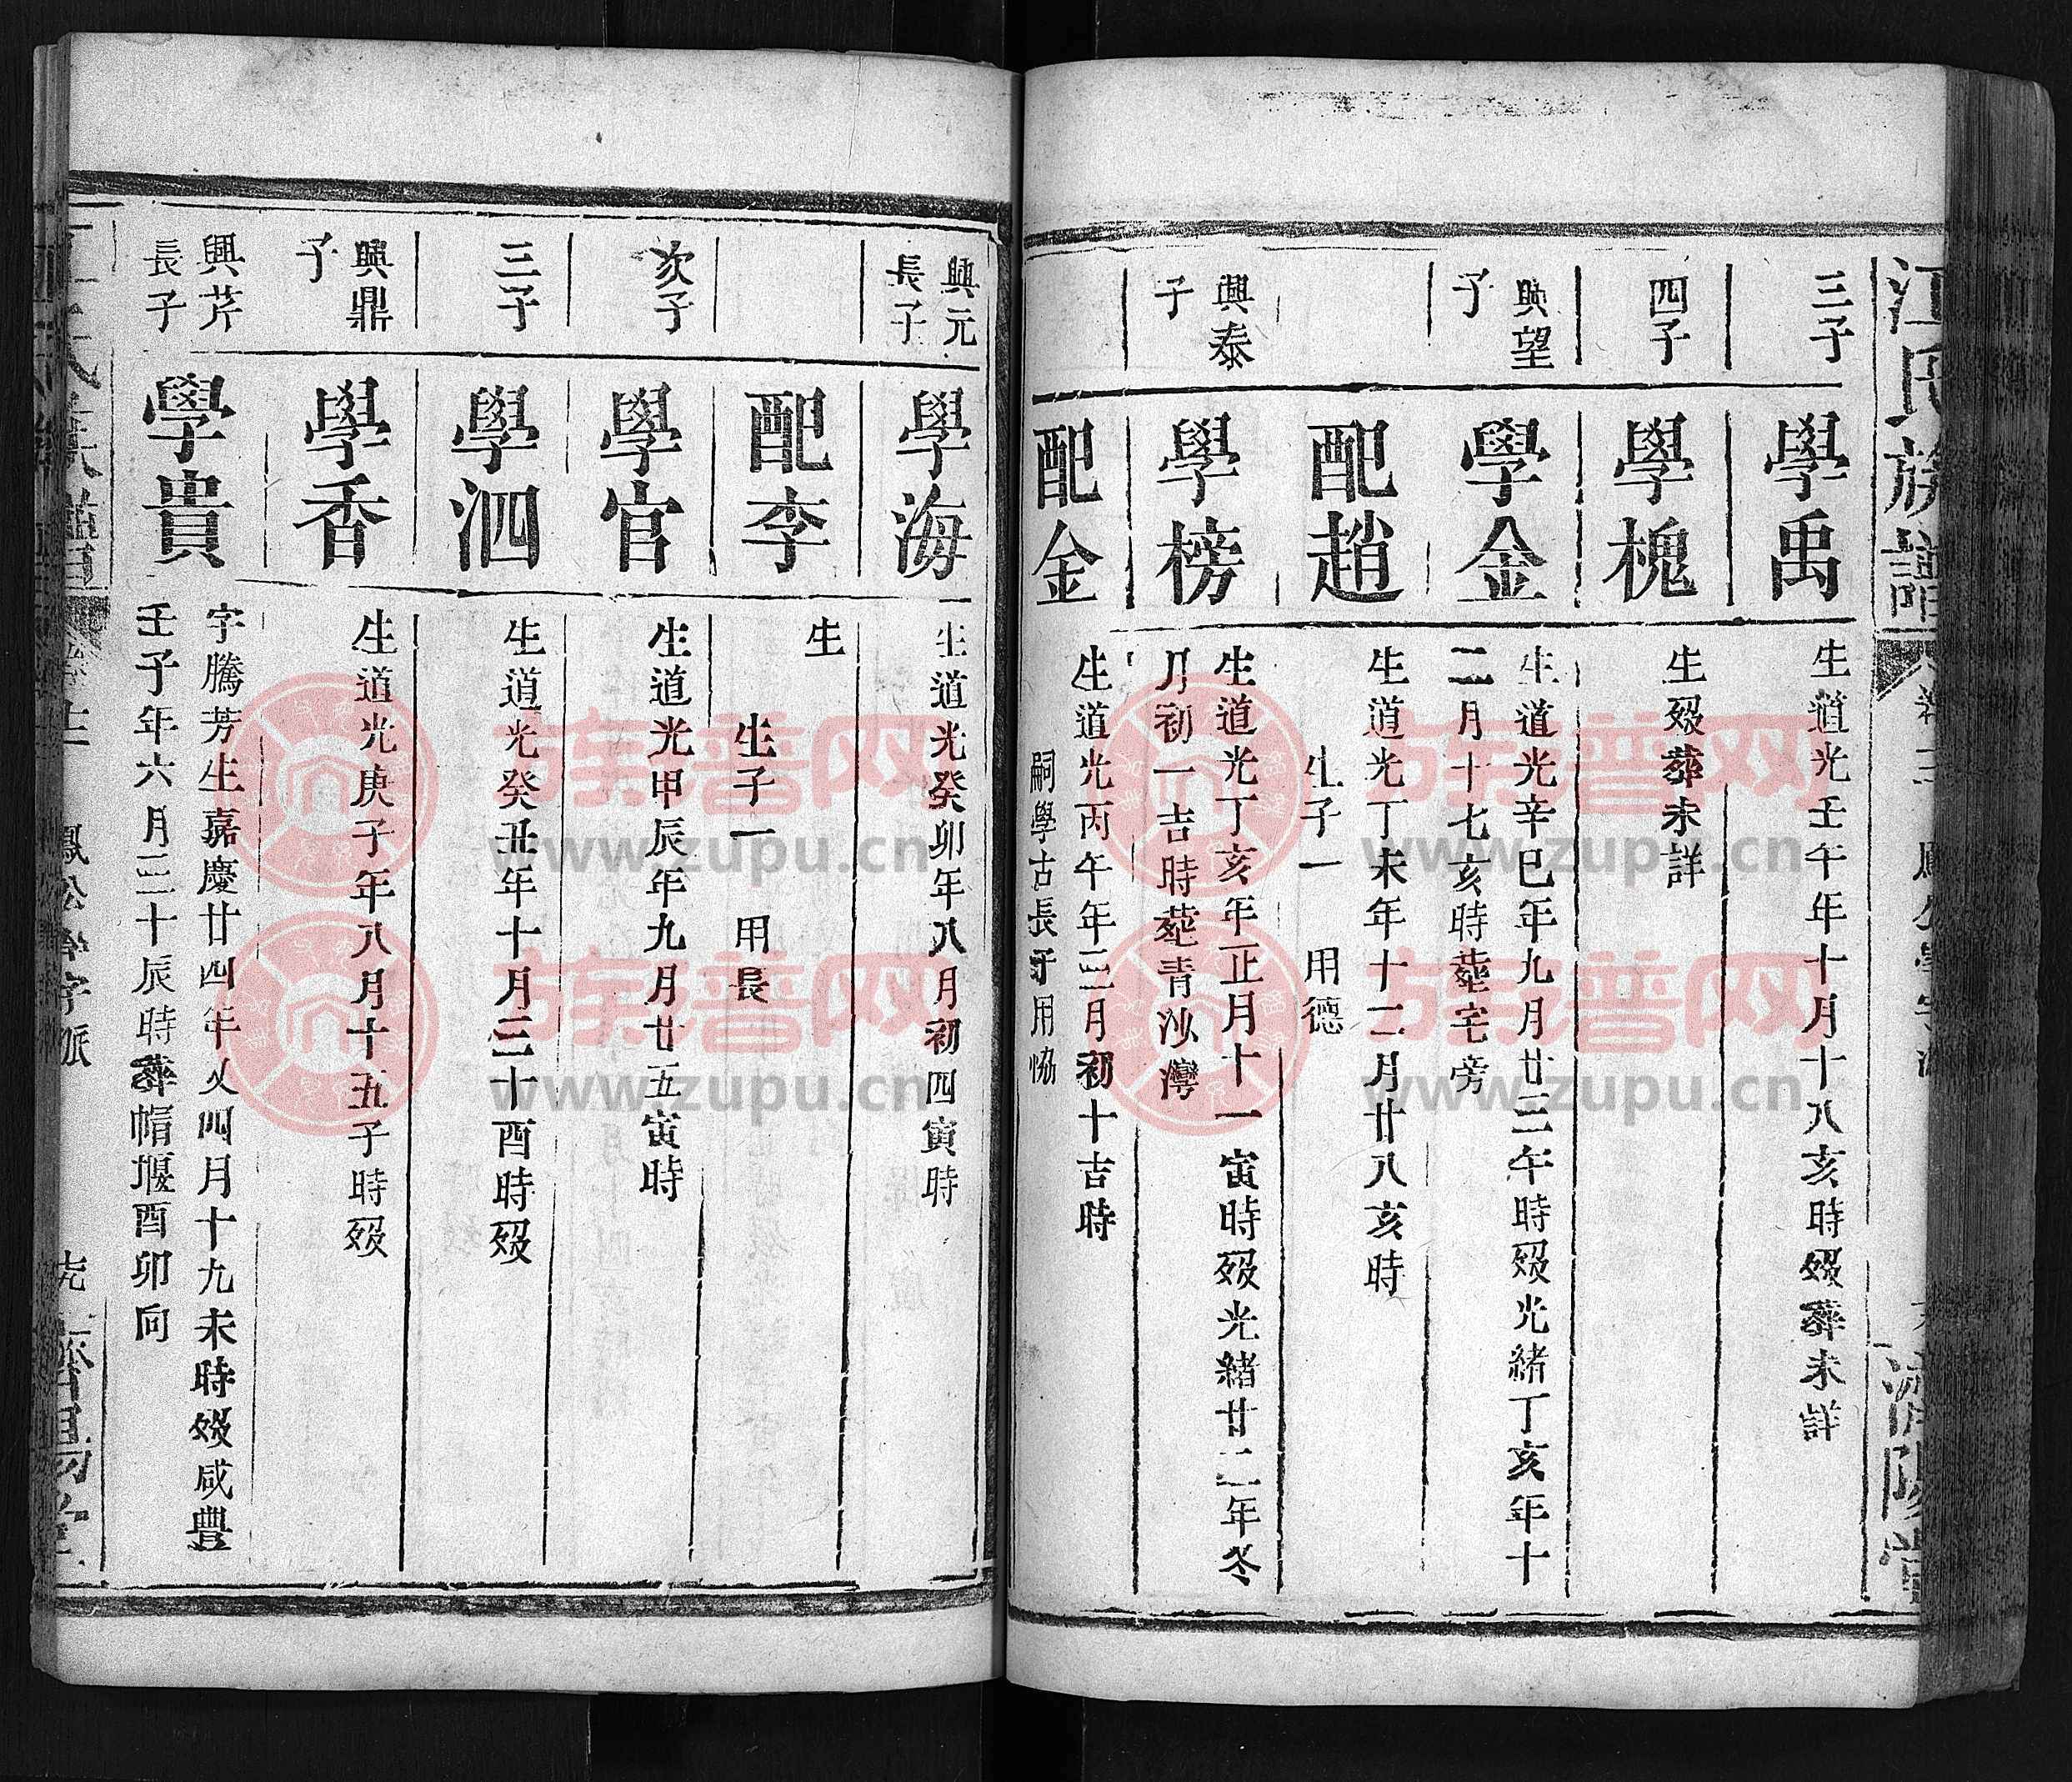 江氏族譜
濟陽堂
三子
學禹
生道光壬午年十月十八亥時歿葬未詳
四子
學槐
生歿葬未詳
興望
子
學金
生道光辛巳年九月廿三午時歿光緒丁亥年十
二月十七亥時塟宅旁
配趙
生道光丁未年十二月廿八亥時
生子一 用德
興泰
子
學榜
生道光丁亥年正月十一寅時歿光緒廿二年冬
月初一吉時塟青沙灣
配金
生道光丙午年三月初十吉時
嗣學古長子用恊
興元
長子
學海
生道光癸卯年八月初四寅時
配李
生
生子一 用長
次子
學官
生道光甲辰年九月廿五寅時
三子
學泗
生道光癸丑年十月三十酉時歿
興鼎
子
學香
生道光庚子年八月十五子時歿
興芹
長子
學貴
字騰芳生嘉慶廿四年又四月十九未時歿咸豐
壬子年六月三十辰時葬帽堰酉卯向
鳳公學字派
族譜网
www.zupu.cn
族譜网
www.zupu.cn
族譜网
www.zupu.cn
族譜网
www.zupu.cn